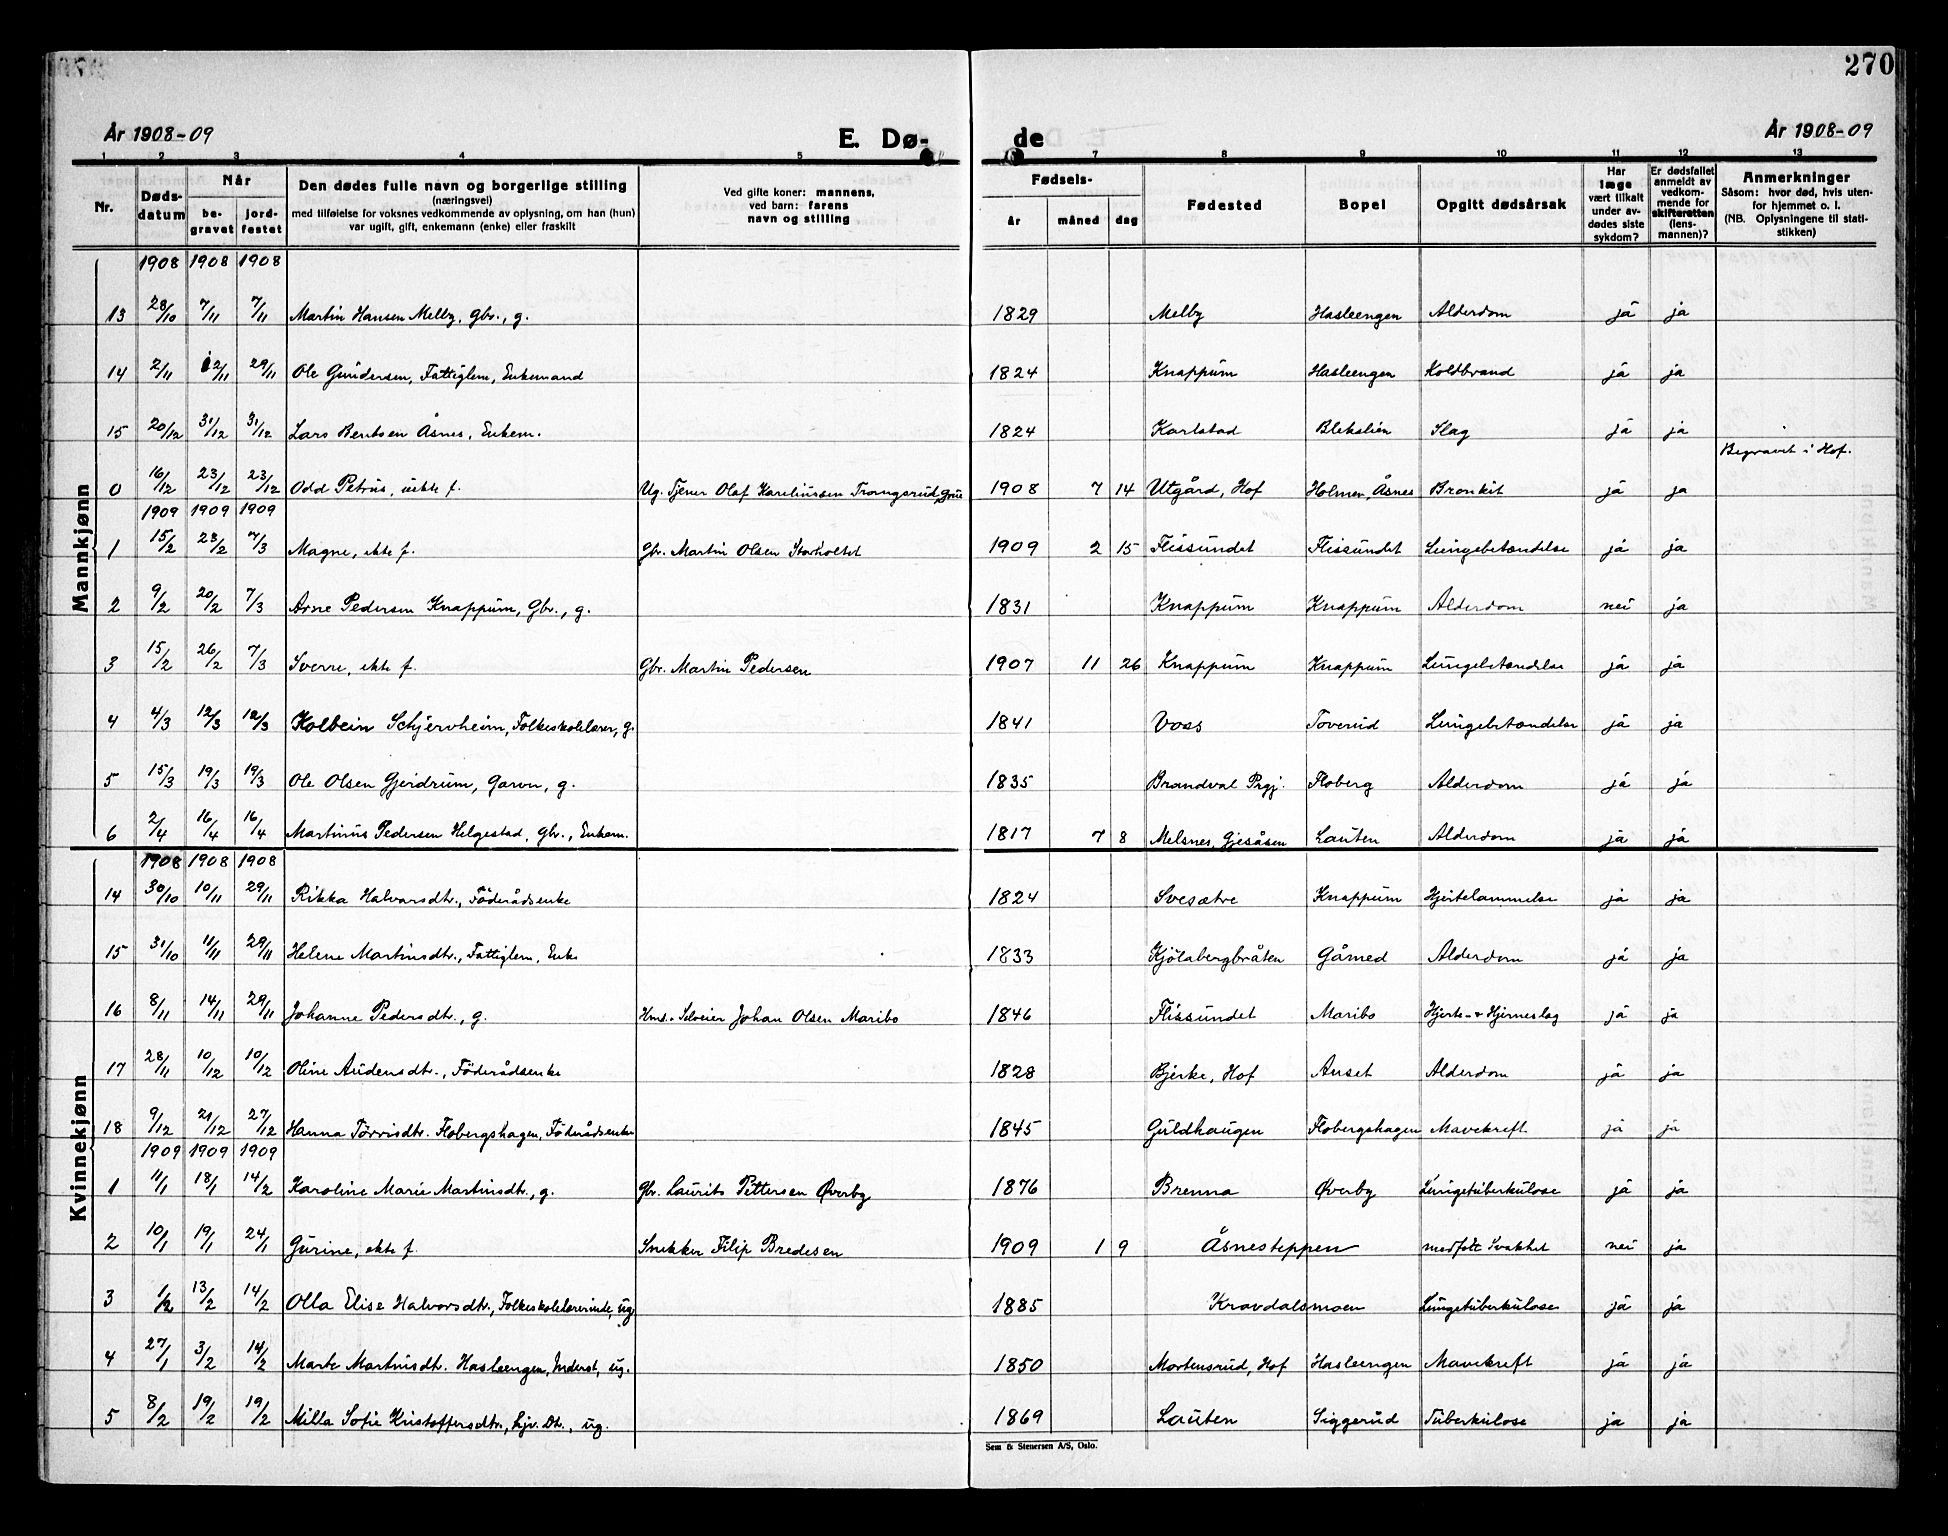 270
År 1908-09
E. Dø-
de
År 1908-09
1 2 3 4 5 7 8 9 10 11 12 13
Nr.
Døds-
datum
Når
be-
gravet
jord-
festet
Den dødes fulle navn og borgerlige stilling
(næringsvei)
med tilføielse for voksnes vedkommende av oplysning, om han (hun)
var ugift, gift, enkemann (enke) eller fraskilt
Ved gifte koner: mannens,
ved barn: farens
navn og stilling
Fødsels-
år måned dag
Fødested
Bopel
Opgitt dødsårsak
Har
læge
vært tilkalt
under av-
dødes siste
sykdom?
Er dødsfallet
anmeldt av
vedkom-
mende for
skifteretten
(lens-
mannen)?
Anmerkninger
Såsom: hvor død, hvis uten-
for hjemmet o. l.
(NB. Oplysningene til stati-
stikken)
Mannkjønn
1908 1908 1908
13 28/10 7/11 7/11 Martin Hansen Melby, Gbr., g. 1829 Melby Hasleengen Alderdom ja ja
14 2/11 12/11 29/11 Ole Gundersen, Fattiglem, Enkemand 1824 Knappum Hasleengen Koldbrand ja ja
15 20/12 31/12 31/12 Lars Bentsen Åsnes, Enkem. 1824 Karlstad Blekslien Slag ja ja
Begravet i Hof.
0 16/12 23/12 23/12 Odd Petrus, uekte f. Ug. Tjener Olaf Kareliussen Trangsrud, Grue 1908 7 14 Utgård, Hof Holmen, Åsnes Bronkit ja ja
1909 1909 1909
1 15/2 23/2 7/3 Magne, ekte f. Gbr. Martin Olsen Storholtet 1909 2 15 Flissundet Flissundet Lungebetændelse ja ja
2 9/2 20/2 7/3 Arne Pedersen Knappum, Gbr., g. 1831 Knappum Knappum Alderdom nei ja
3 15/2 26/2 7/3 Sverre, ekte f. Gbr. Martin Pedersen 1907 11 26 Knappum Knappum Lungebetændelse ja ja
4 4/3 12/3 12/3 Kolbein Schjervheim, Folkeskolelærer, g. 1841 Voss Toverud Lungebetændelse ja ja
5 15/3 19/3 19/3 Ole Olsen Gjerdrum, Garver, g. 1835 Brandval Prgj. Floberg Alderdom ja ja
6 2/4 16/4 16/4 Martinus Pedersen Helgestad, Gbr., Enkem. 1817 7 8 Melsnes, Gjesåsen Lauten Alderdom ja ja
Kvinnekjønn
1908 1908 1908
14 30/10 10/11 29/11 Rikka Halvorsdtr., Föderådsenke 1824 Svesætre Knappum Hjertelammelse ja ja
15 31/10 11/11 29/11 Helene Martinsdtr., Fattiglem, Enke 1833 Kjölabergbråten Gårned Alderdom ja ja
16 8/11 14/11 29/11 Johanne Pedersdtr., g. Hms.- Selveier Johan Olsen Maribo 1846 Flissundet Maribo Hjerte- & Hjerneslag ja ja
17 28/11 10/12 10/12 Oline Audensdtr., Föderådsenke 1828 Bjerke, Hof Anset Alderdom ja ja
18 9/12 21/12 27/12 Hanna Törrisdtr. Flobergshagen, Föderådsenke 1845 Guldhaugen Flobergshagen Mavekreft ja ja
1909 1909 1909
1 11/1 18/1 14/2 Karoline Marie Martinsdtr., g. Gbr. Laurits Pettersen Øverby 1876 Brenna Øverby Lungetuberkulose ja ja
2 10/1 19/1 24/1 Gurine, ekte f. Snekker Filip Bredesen 1909 1 9 Åsnesteppen medfött Svakhet nei ja
3 1/2 13/2 14/2 Olla Elise Halvorsdtr., Folkeskolelærerinde, ug. 1885 Kravdalsmoen Lungetuberkulose ja ja
4 27/1 3/2 14/2 Marte Martinsdtr. Hasleengen, Inderst, ug. 1850 Mortensrud, Hof Hasleengen Mavekreft ja ja
5 8/2 19/2 19/2 Milla Sofie Kristoffersdtr., Hjv. Dtr., ug. 1869 Lauten Siggerud Tuberkulose ja ja
Sem & Stenersen A/S, Oslo.